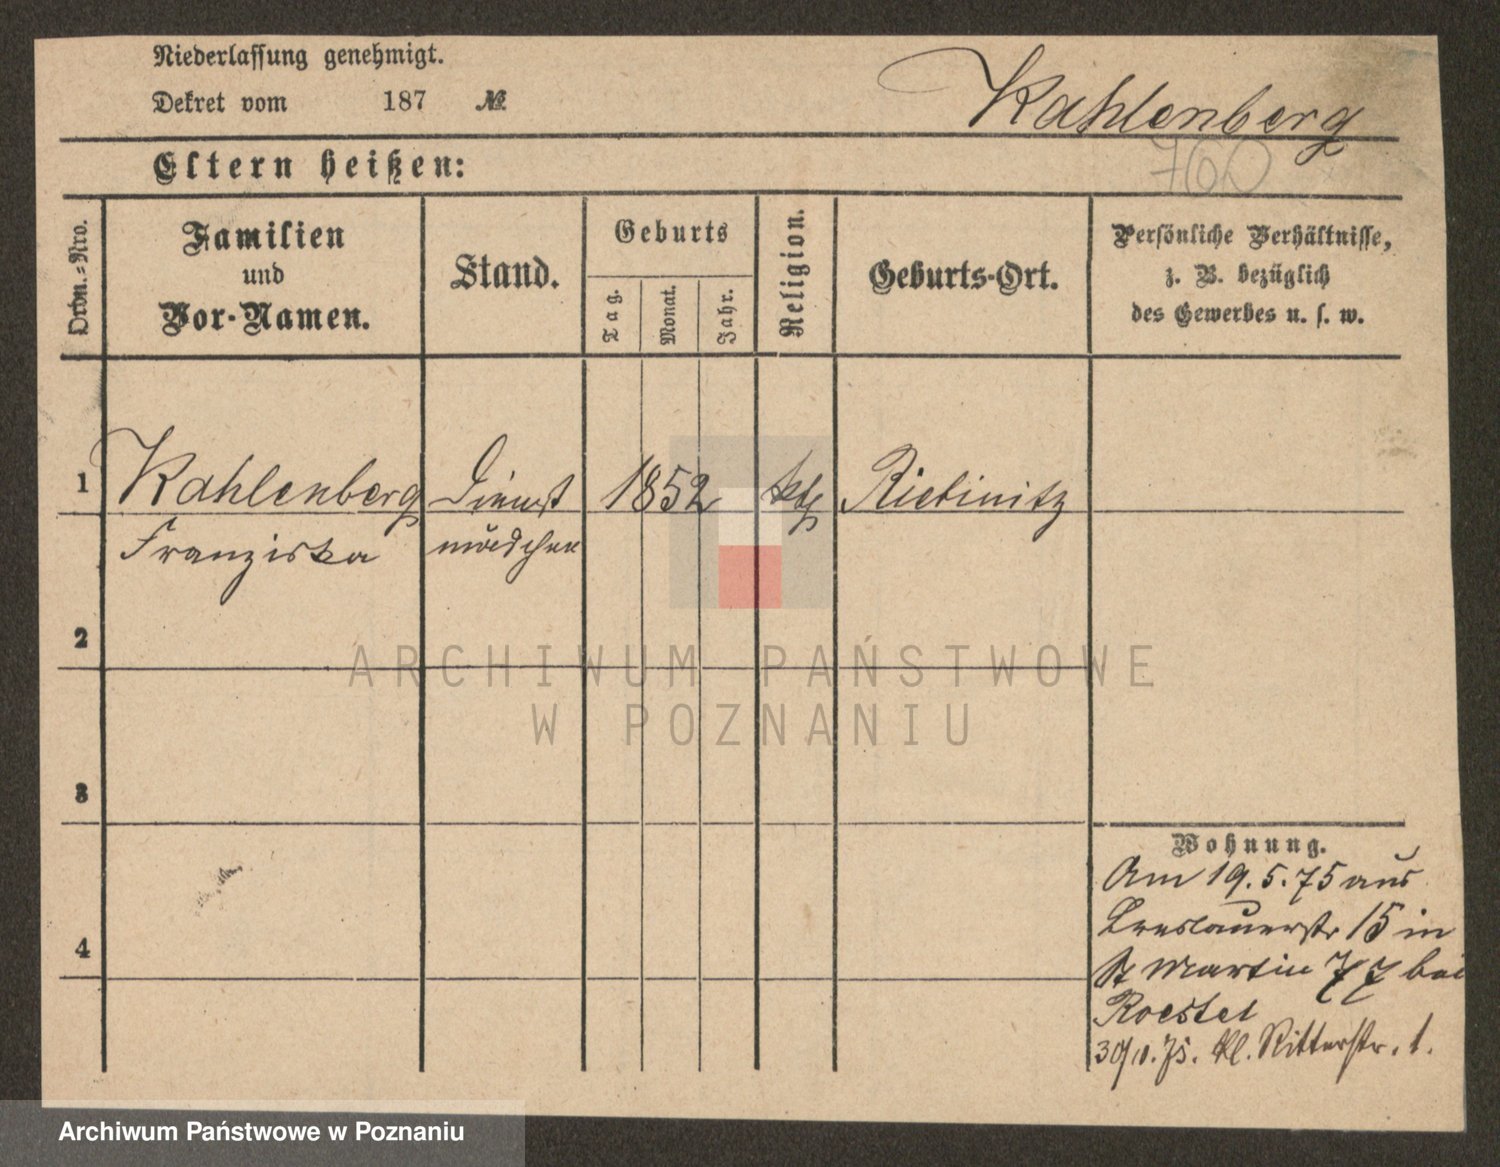 Niederlassung genehmigt.
Dekret vom 187 №
Kahlenberg
760
Eltern heißen:
Ordn.=Nro.
Familien
und
Vor-Namen.
Stand.
Geburts
Tag.
Monat.
Jahr.
Religion.
Geburts-Ort.
Persönliche Verhältnisse,
z. B. bezüglich
des Gewerbes u. s. w.
1 Kahlenberg Dienst 1852 kth Rietinitz
Franziska mädchen
2
ARCHIWUM PAŃSTWOWE
W POZNANIU
3
Wohnung.
Am 19.5.75 aus
Breslauerstr 15 in
St Martin 77 bei
4
Roestel
75. kl. Ritterstr. 1.
Archiwum Państwowe w Poznaniu